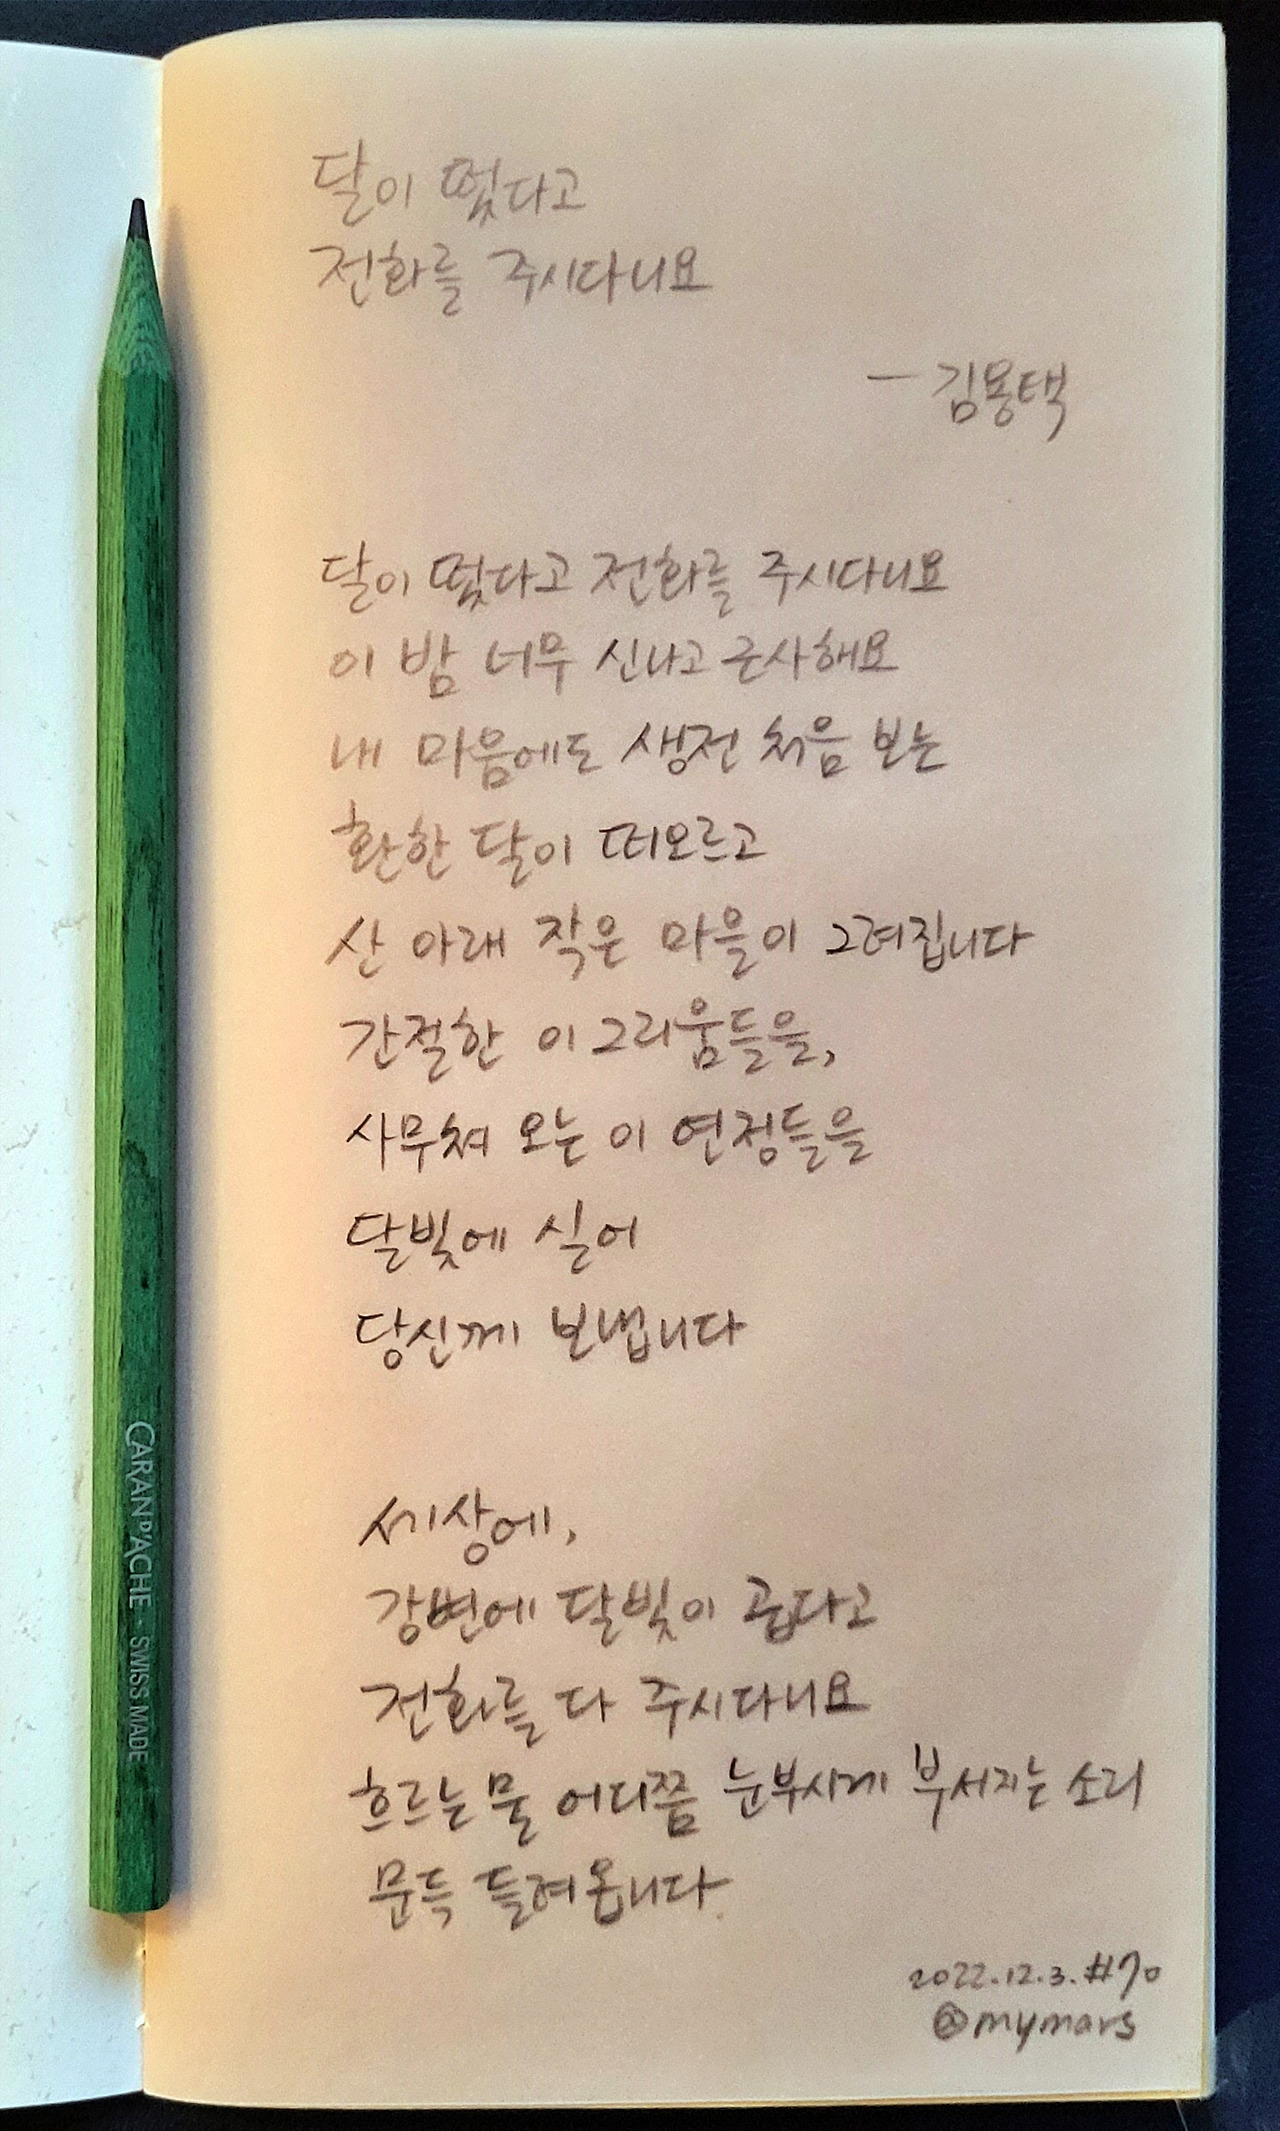 달이 떴다고
전화를 주시다니요
- 김용택
달이 떴다고 전화를 주시다니요
이 밤 너무 신나고 근사해요
내 마음에도 생전 처음 보는
환한 달이 떠오르고
산 아래 작은 마을이 그려집니다
간절한 이 그리움들을,
사무쳐 오는 이 연정들을
달빛에 실어
당신께 보냅니다
세상에,
강변에 달빛이 곱다고
전화를 다 주시다니요
흐르는 물 어디쯤 눈부시게 부서지는 소리
문득 들려옵니다.
2022.12.3. #70
@mymars
CARAN D'ACHE · SWISS MADE